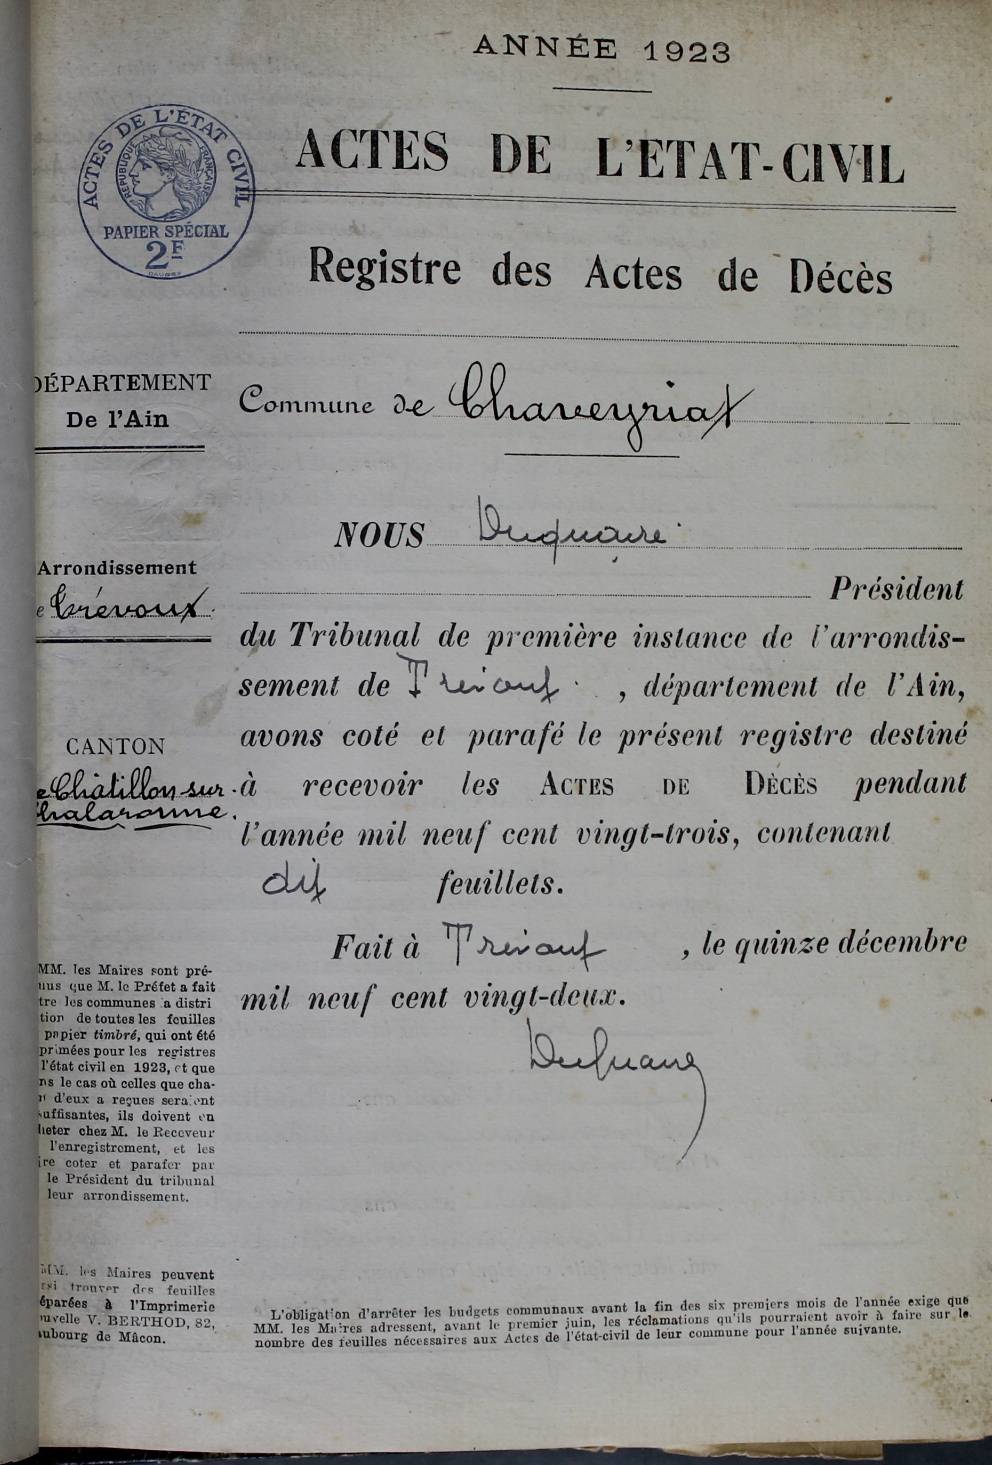 ANNÉE 1923
ACTES DE L'ÉTAT CIVIL
RÉPUBLIQUE FRANÇAISE
PAPIER SPÉCIAL
2F
ACTES DE L'ETAT-CIVIL
Registre des Actes de Décès
DÉPARTEMENT
De l'Ain
Commune de Chaveyriat
Arrondissement
e Trévoux.
CANTON
e Châtillon-sur-
halaronne.
NOUS Duquaire
Président
du Tribunal de première instance de l'arrondis-
sement de Trévoux, département de l'Ain,
avons coté et parafé le présent registre destiné
à recevoir les ACTES DE DÉCÈS pendant
l'année mil neuf cent vingt-trois, contenant
dix feuillets.
Fait à Trévoux, le quinze décembre
mil neuf cent vingt-deux.
Duquaire
MM. les Maires sont pré-
nus que M. le Préfet a fait
tre les communes a distri
tion de toutes les feuilles
papier timbré, qui ont été
primées pour les registres
l'état civil en 1923, et que
ns le cas où celles que cha-
n d'eux a reçues seraient
suffisantes, ils doivent en
heter chez M. le Receveur
l'enregistrement, et les
ire coter et parafer par
le Président du tribunal
leur arrondissement.
MM. les Maires peuvent
ssi trouver des feuilles
éparées à l'Imprimerie
ouvelle V. BERTHOD, 82,
aubourg de Mâcon.
L'obligation d'arrêter les budgets communaux avant la fin des six premiers mois de l'année exige que
MM. les Maires adressent, avant le premier juin, les réclamations qu'ils pourraient avoir à faire sur le
nombre des feuilles nécessaires aux Actes de l'état-civil de leur commune pour l'année suivante.